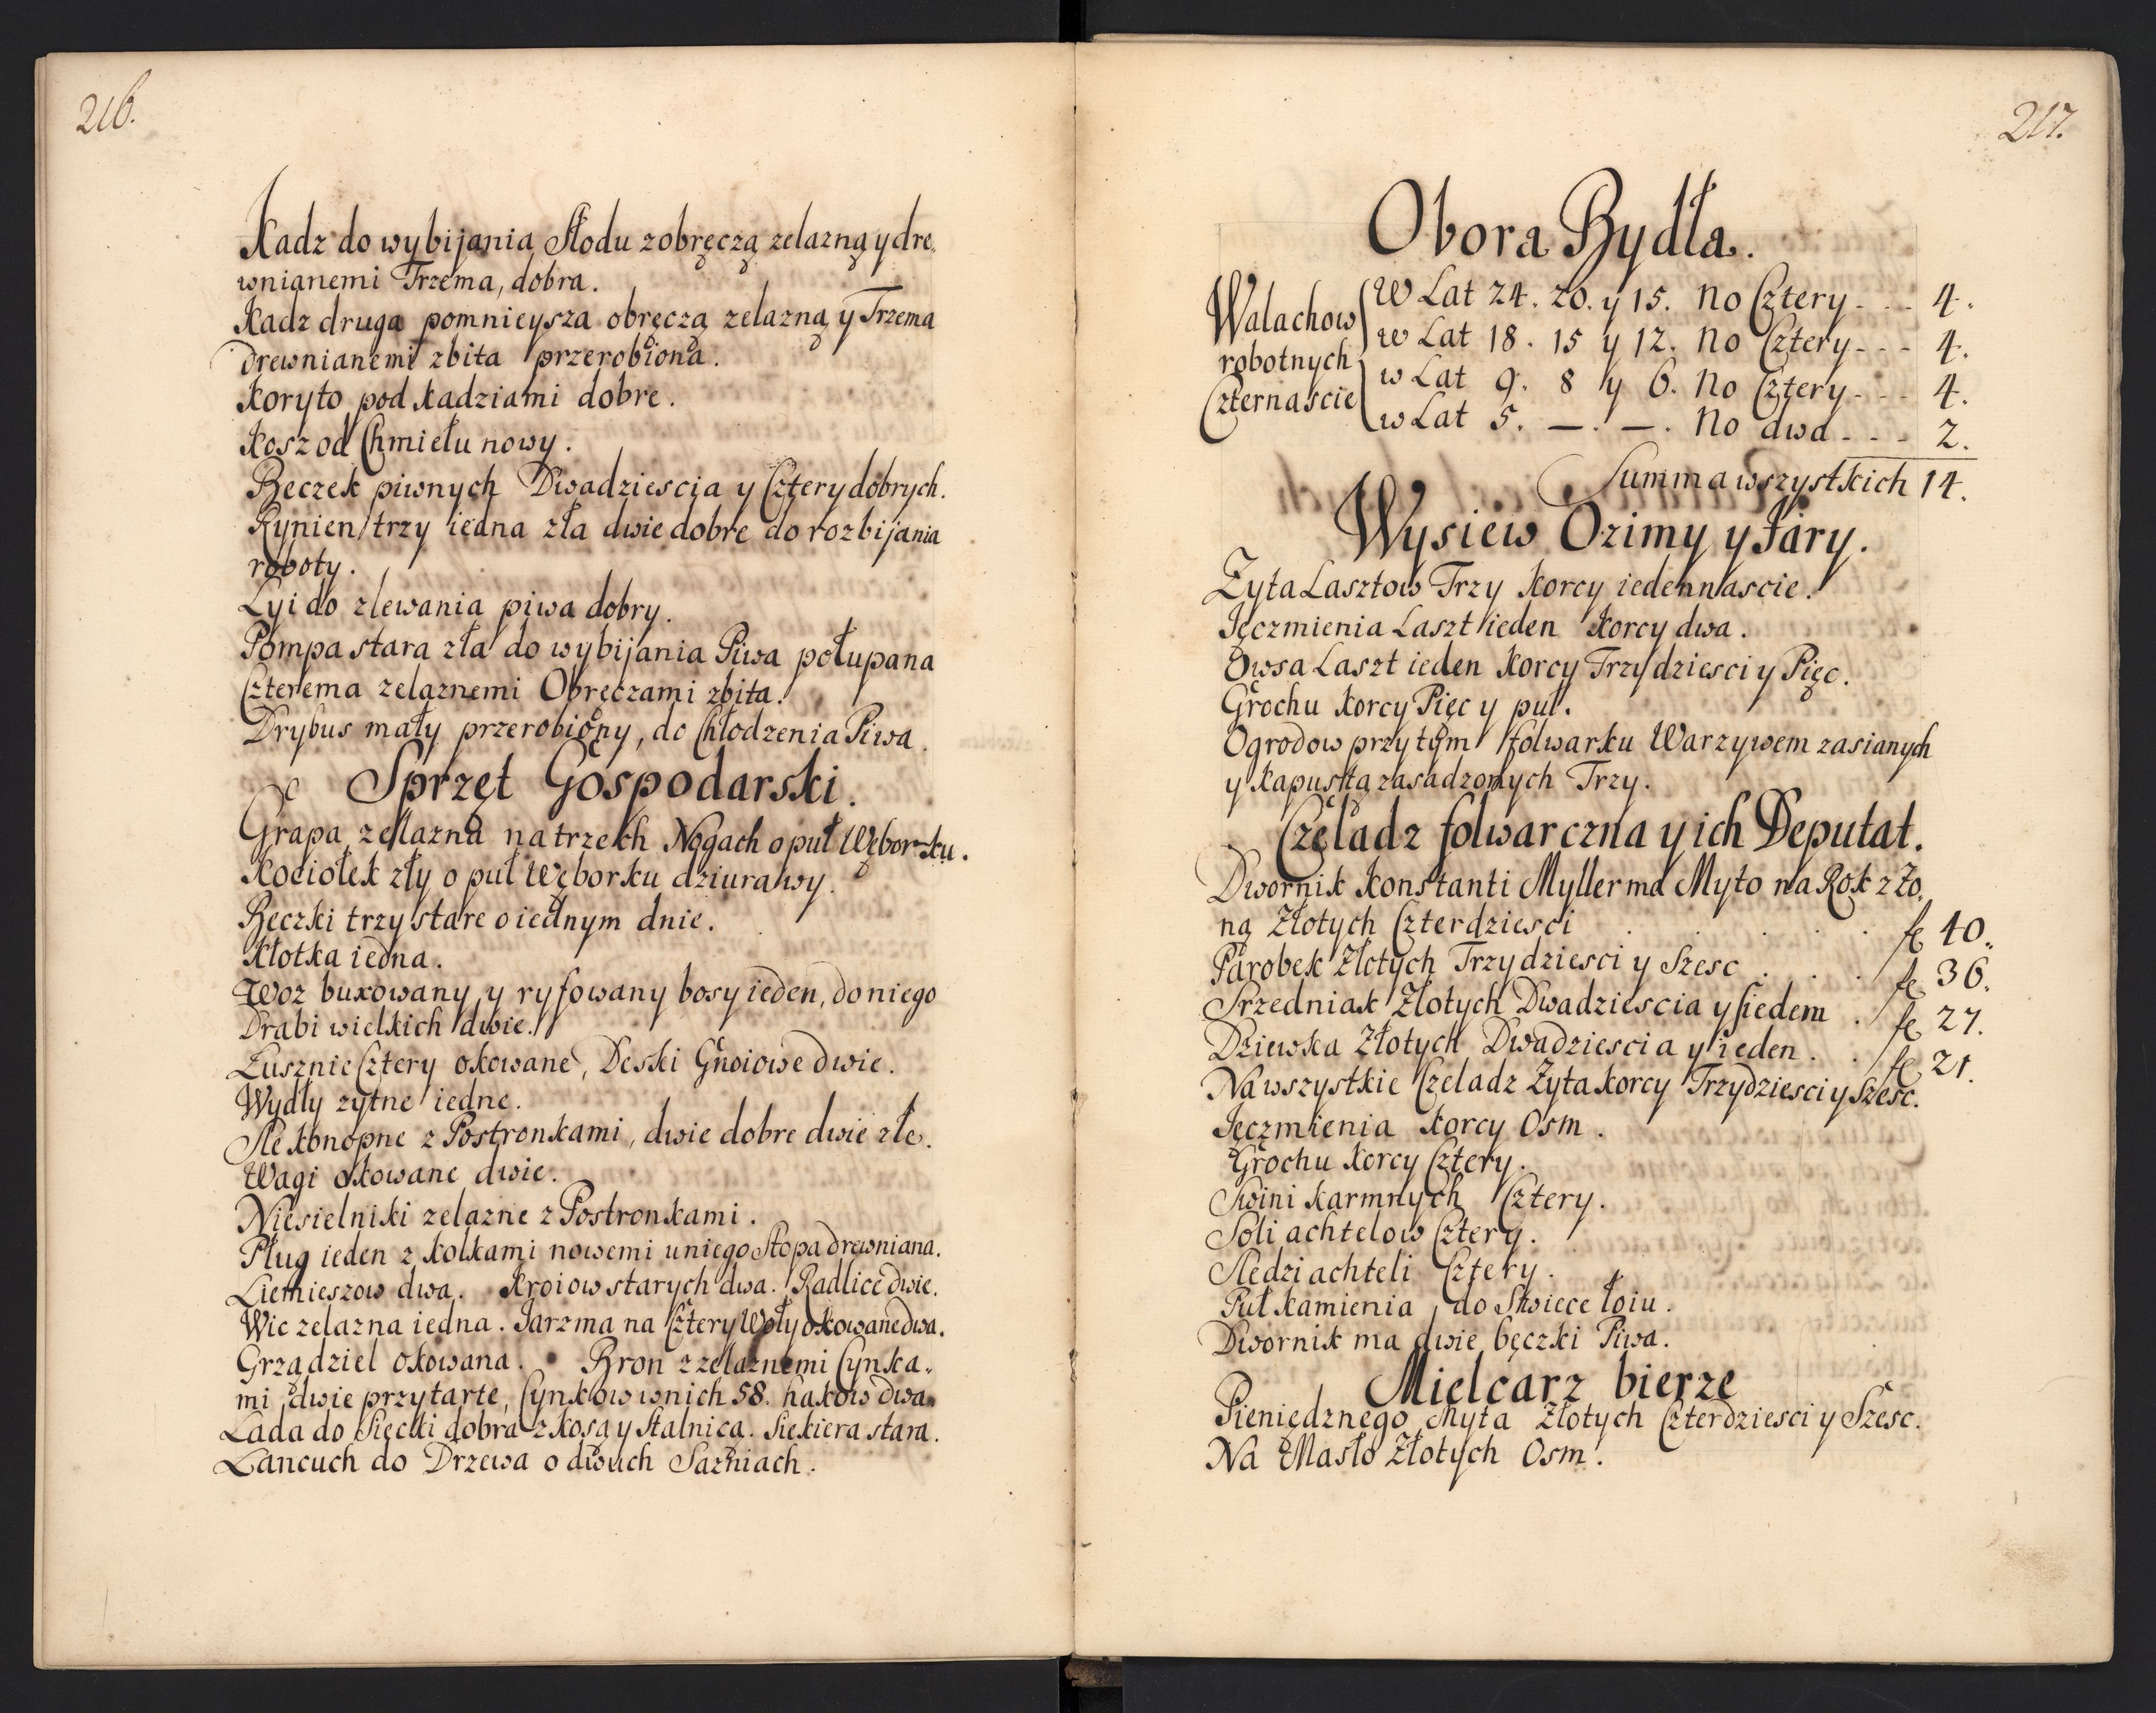 216.
Kadz do wybijania Słodu z obręczą zelazną y dre,
wnianemi Trzema, dobra.
Kadz druga pomnieysza obręczą zelazną y Trzema
drewnianemi zbita przerobiona.
Koryto pod Kadziami dobre.
Kosz od Chmielu nowy.
Beczek piwnych Dwadziescia y Cztery dobrych.
Rynien trzy iedna zła dwie dobre do rozbijania
roboty.
Lyi do zlewania piwa dobry.
Pompa stara zła do wybijania Piwa połupana
Czterema zelaznemi Obręczami zbita.
Drybus mały przerobiony, do Chłodzenia Piwa.
Sprzęt Gospodarski.
Grapa zelazna na trzech Nogach o puł Węborku.
Kociołek zły o puł Węborku dziurawy.
Beczki trzy stare o iednym dnie.
Kłotka iedna.
Woz buxowany y ryfowany bosy ieden, do niego
Drabi wielkich dwie.
Lusznie Cztery okowane, Deski Gnoiowe dwie.
Widły zytne iedne.
Sle Konopne z Postronkami, dwie dobre dwie złe.
Wagi okowane dwie.
Niesielniki zelazne z Postronkami.
Pług ieden z Kolkami nowemi u niego Stopa drewniana.
Liemieszow dwa. Kroiow starych dwa. Radlice dwie.
Wic zelazna iedna. Jarzma na Cztery Woły okowane dwa.
Grządziel okowana. Bron z zelaznemi Cynka,
mi dwie przytarte, Cynkow w nich 58. hakow dwa.
Lada do Sięcki dobra z Kosą y Stalnicą. Siekiera stara.
Lancuch do Drzewa o dwuch Sazniach.
217.
Obora Bydła.
Walachow robotnych Czternascie
W Lat 24. 20. y 15. No Cztery - - - 4.
w Lat 18. 15 y 12. No Cztery - - - 4.
w Lat 9. 8 y 6. No Cztery - - - 4.
w Lat 5. —. —. No dwa - - - 2.
Summa wszystkich 14.
Wysiew Ozimy y Jary.
Zyta Lasztow Trzy Korcy iedennascie.
Jęczmienia Laszt ieden Korcy dwa.
Owsa Laszt ieden Korcy Trzydziesci y Pięc.
Grochu Korcy Pięc y puł.
Ogrodow przy tym folwarku Warzywem zasianych
y Kapustą zasadzonych Trzy.
Czeladz folwarczna y ich Deputat.
Dwornik Konstanti Myller ma Myto na Rok z Zo,
ną Złotych Czterdziesci . . . . . f 40.
Parobek Złotych Trzydziesci y Szesc . . . f 36.
Srzedniak Złotych Dwadziescia y siedem . f 27.
Dziewka Złotych Dwadziescia y ieden . . f 21.
Na wszystkie Czeladz Zyta Korcy Trzydziesci y Szesc.
Jęczmienia Korcy Osm.
Grochu Korcy Cztery.
Swini Karmnych Cztery.
Soli achtelow Cztery.
Sledzi achteli Cztery.
Puł Kamienia do Swiece łoiu.
Dwornik ma dwie bęczki Piwa.
Mielcarz bierze
Pieniędznego Myta Złotych Czterdziesci y Szesc.
Na Masło Złotych Osm.